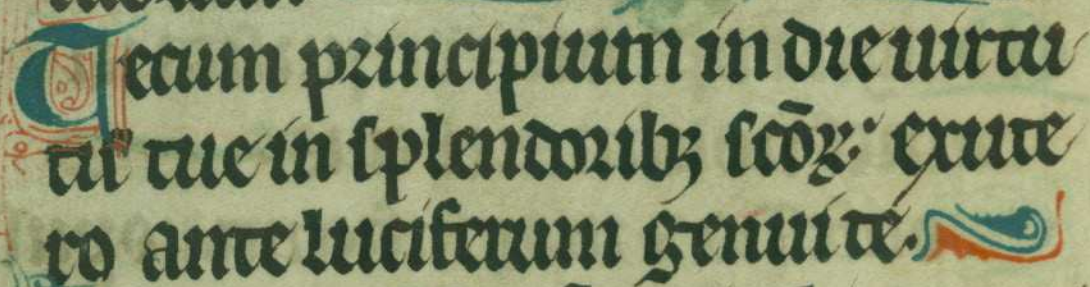 Tecum principium in die uirtu
tue in splendoribꝫ scōꝝ: ex ute
ro ante luciferum genui te.